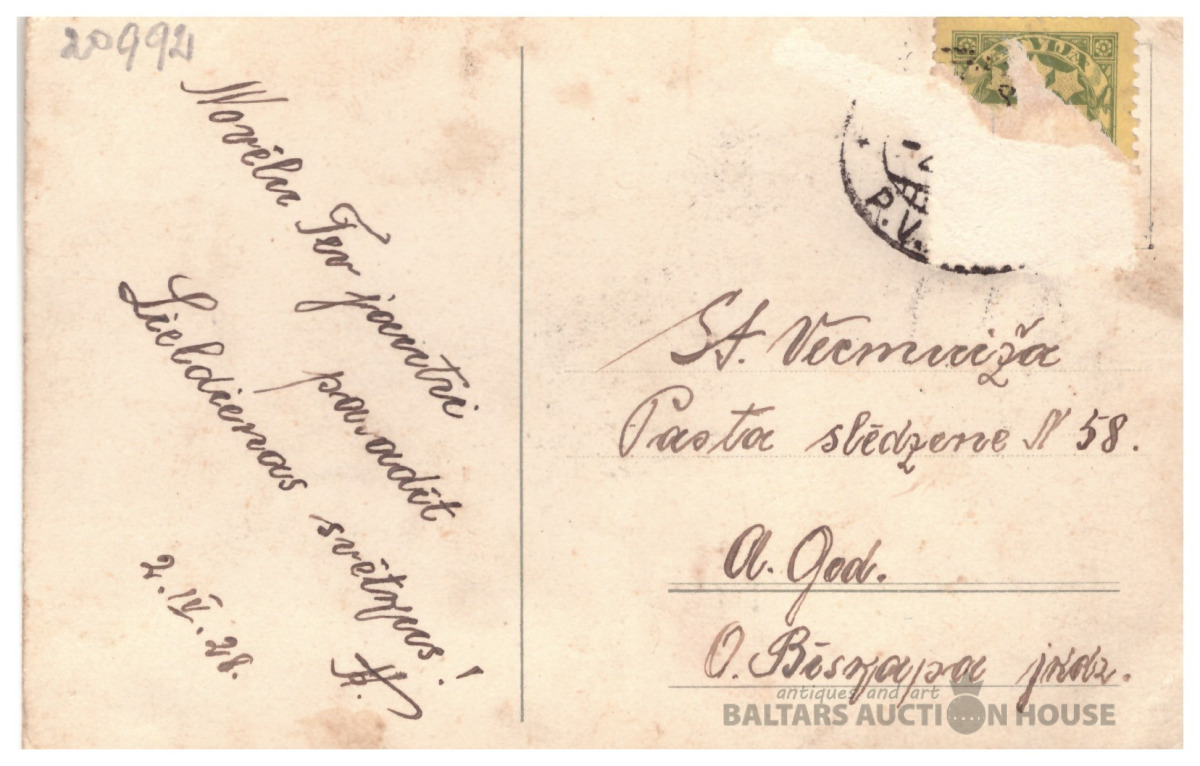 20992
Novēlu Tev jautri
pavadīt
Lieldienas svētzus!
A.
2. IV. 28.
P.V.
St. Vecmuiža
Pasta slēdzene N 58.
A. God.
O. Bēszapa jkdz.
antiques and art
BALTARS AUCTION HOUSE